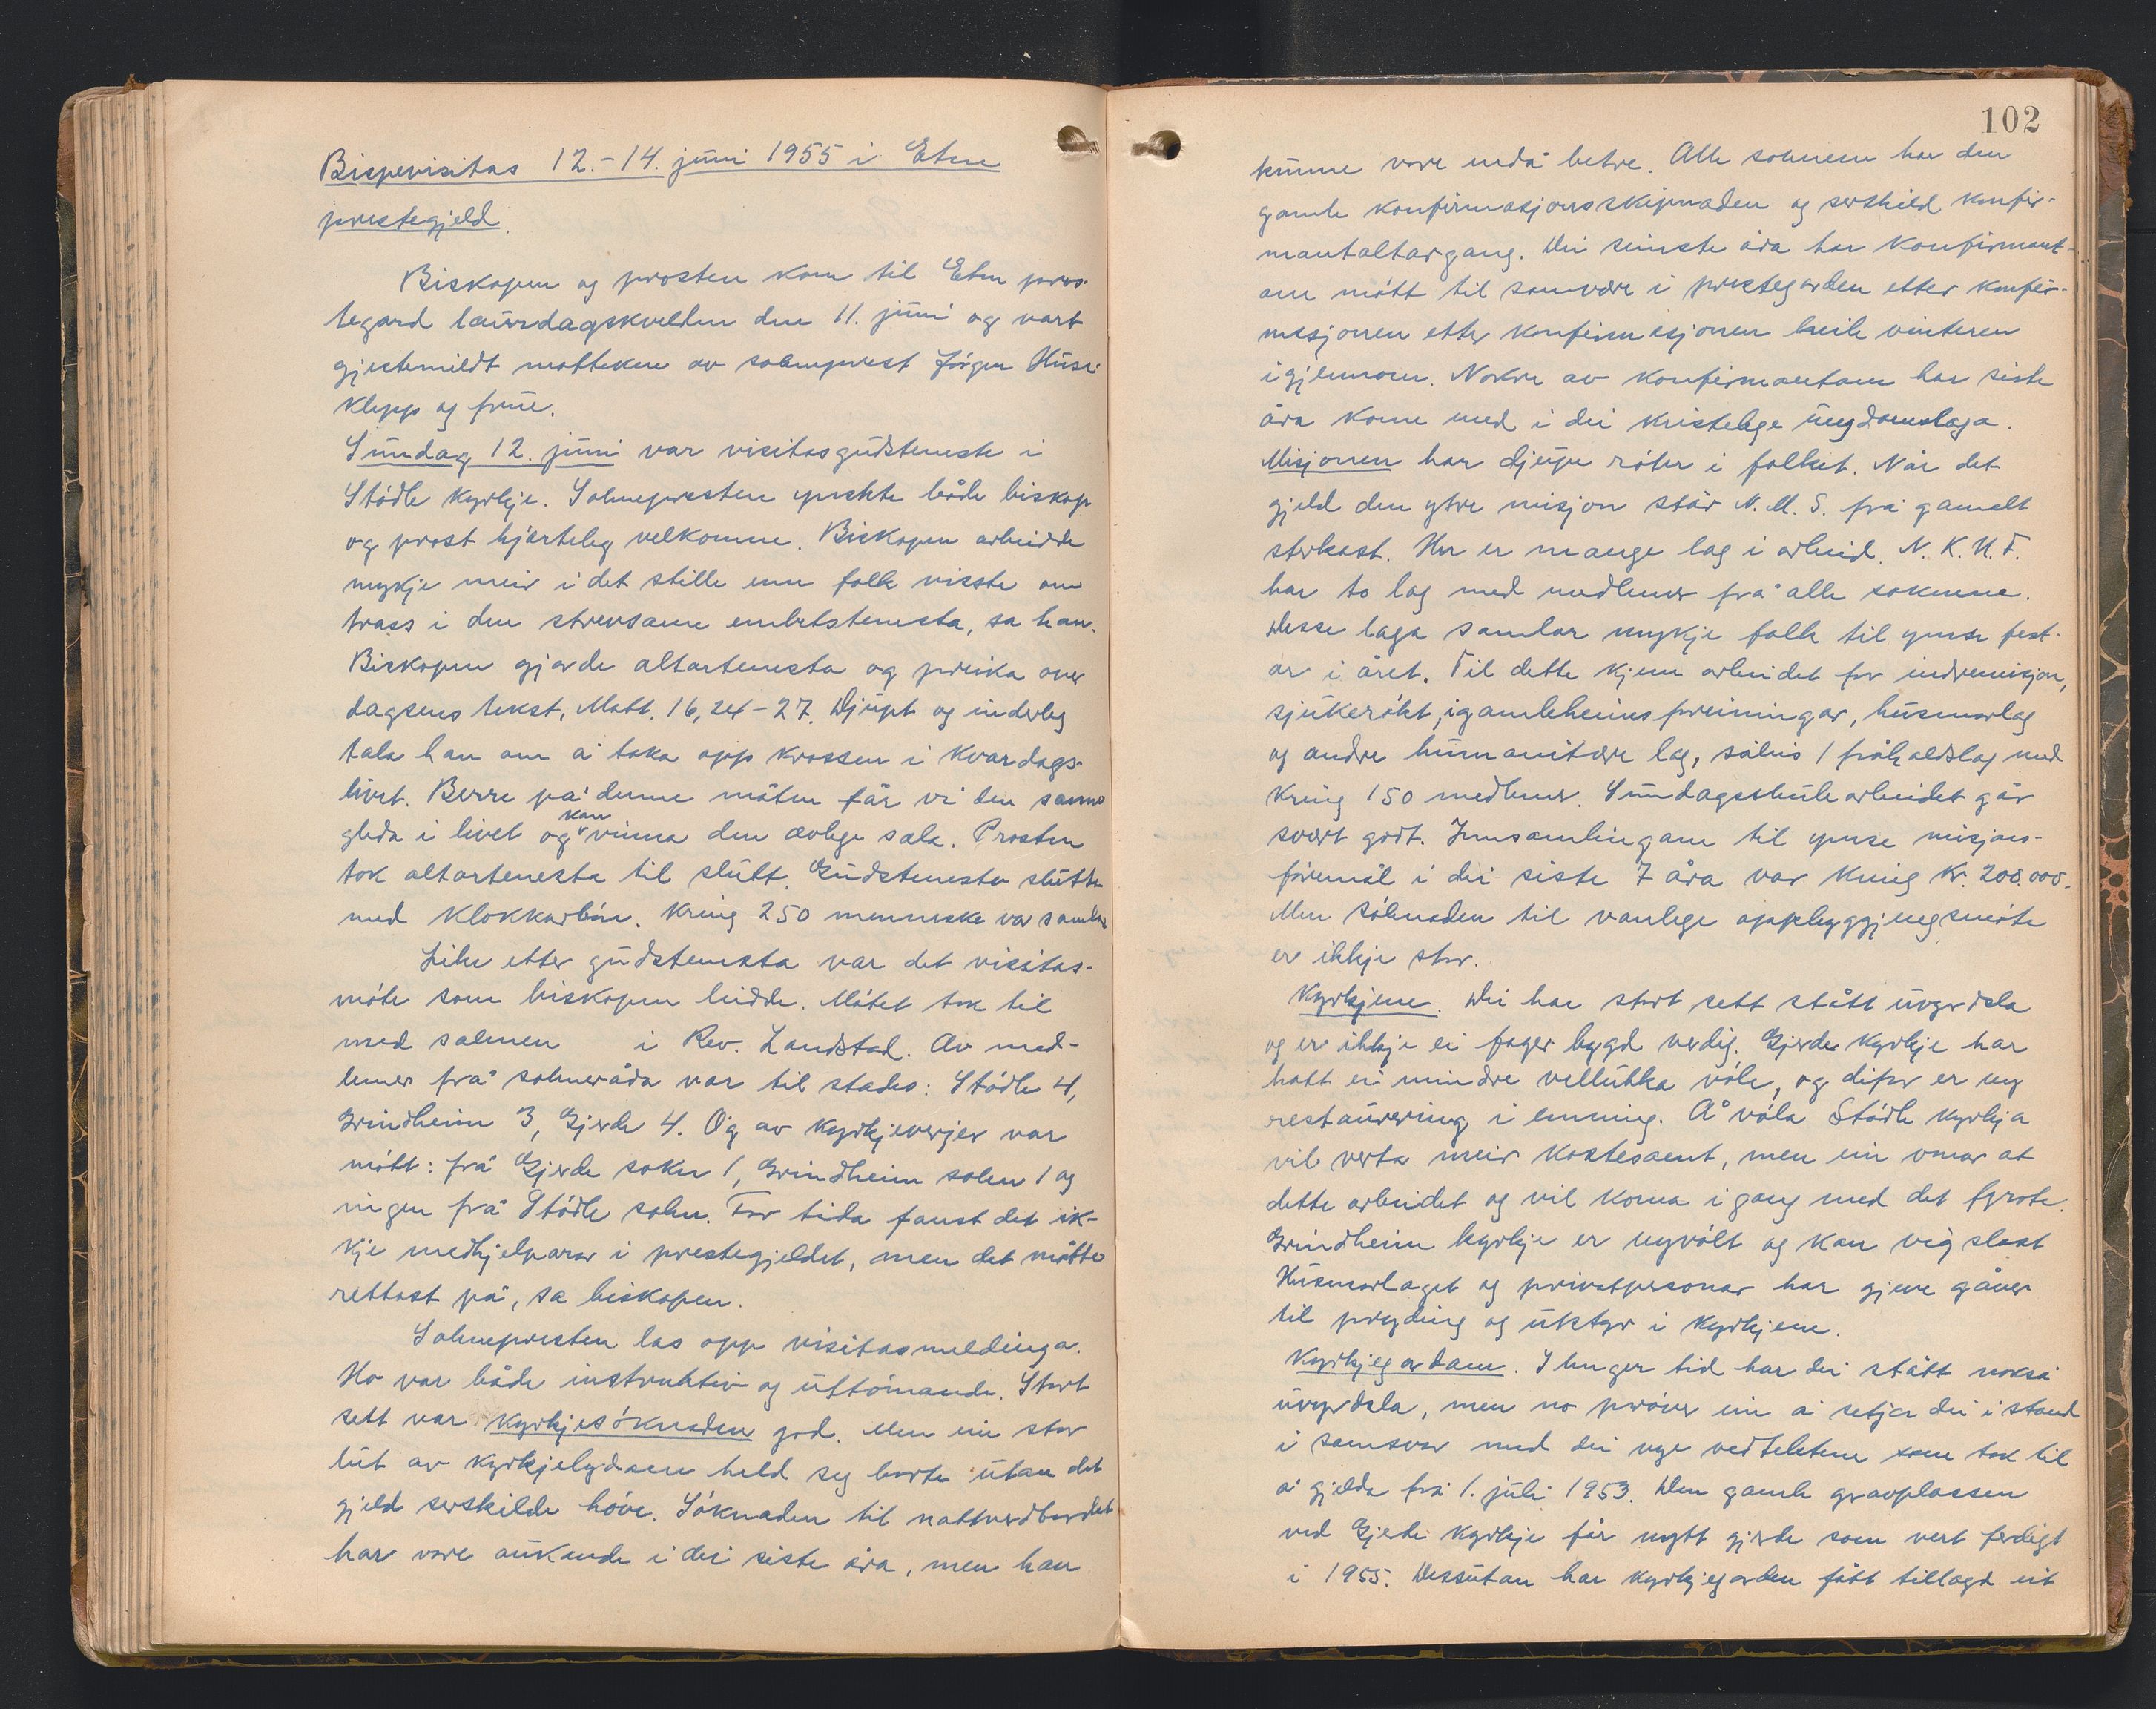 Bispevisitas 12.-14. juni 1955 i Etne
prestegjeld.
Biskopen og prosten kom til Etne pres-
tegard laurdagskvelden den 11. juni og vart
gjestemildt motteken av sokneprest Jörgen Huse-
klepp og frue.
Sundag 12. juni var visitasgudsteneste i
Stödle kyrkje. Soknepresten ynskte både biskop
og prost hjarteleg velkomne. Biskopen arbeidde
mykje meir i det stille enn folk visste om
trass i den strevsame embetstenesta, sa han.
Biskopen gjorde altartenesta og preika over
dagsens tekst, Matt. 16, 24-27. Djupt og inderleg
tala han om å taka opp krossen i kvardags-
livet. Berre på denne måten får vi den sanne
gleda i livet og kan vinna den ævlege sæla. Prosten
tok altartenesta til slutt. Gudstenesta slutta
med klokkarbön. Kring 250 menneske var samla.
Like etter gudstenesta var det visitas-
möte som biskopen leidde. Mötet tok til
med salmen i Rev. Landstad. Av med-
lemer frå sokneråda var til stades: Stödle 4,
Grindheim 3, Gjerde 4. Og av kyrkjeverjer var
mött: frå Gjerde sokn 1, Grindheim sokn 1 og
ingen frå Stödle sokn. For tida fanst det ik-
kje medhjelparar i prestegjeldet, men det måtte
rettast på, sa biskopen.
Soknepresten las opp visitasmeldinga.
Ho var både instruktiv og uttömande. Stort
sett var kyrkjesöknaden god. Men ein stor
lut av kyrkjelydane held seg borte utan det
gjeld serskilde höve. Söknaden til nattverdbordet
har vore aukende i dei siste åra, men han
102
kunne vore endå betre. Alle soknene har den
gamle konfirmasjonsskipnaden og serskild konfir-
mantaltargang. Dei seinste åra har konfirmant-
ane mött til samvære i prestegarden etter konfir-
masjonen etter konfirmasjonen heile vinteren
igjennom. Nokre av konfirmantane har siste
åra kome med i dei kristelege ungdomslaga.
Misjonen har djupe röter i folket. Når det
gjeld den ytre misjon står N.M.S. frå gamalt
sterkast. Her er mange lag i arbeid. N.K.U.F.
har to lag med medlemer frå alle soknene.
Desse laga samlar mykje folk til ymse fest-
ar i året. Til dette kjem arbeidet for indremisjon,
sjukerökt, gamleheimsforeiningar, husmorlag
og andre humanitære lag, såleis 1 fråhaldslag med
kring 150 medlemer. Sundagsskulearbeidet går
svært godt. Innsamlingane til ymse misjons-
föremål i dei siste 7 åra var kring kr. 200.000.
Men söknaden til vanlege oppbyggjingsmöte
er ikkje stor.
Kyrkjene. Dei har stort sett stått uvyrdsla
og er ikkje ei fager bygd verdig. Gjerde kyrkje har
hatt ei mindre vellukka völe, og difor er ny
restaurering i emning. Å völa Stödle kyrkja
vil verta meir kostesamt, men ein vonar at
dette arbeidet og vil koma i gang med det fyrste.
Grindheim kyrkje er nyvölt og kan vigslast
Husmorlaget og privatpersonar har gjeve gåver
til pryding og utstyr i kyrkjene.
Kyrkjegardane. I lenger tid har dei stått nokså
uvyrdsla, men no pröver ein å setja dei i stand
i samsvar med dei nye vedtektene som tok til
å gjelda frå 1. juli 1953. Den gamle gravplassen
ved Gjerde kyrkje får nytt gjerde som vert ferdigt
i 1955. Dessutan har kyrkjegarden fått tillagd eit